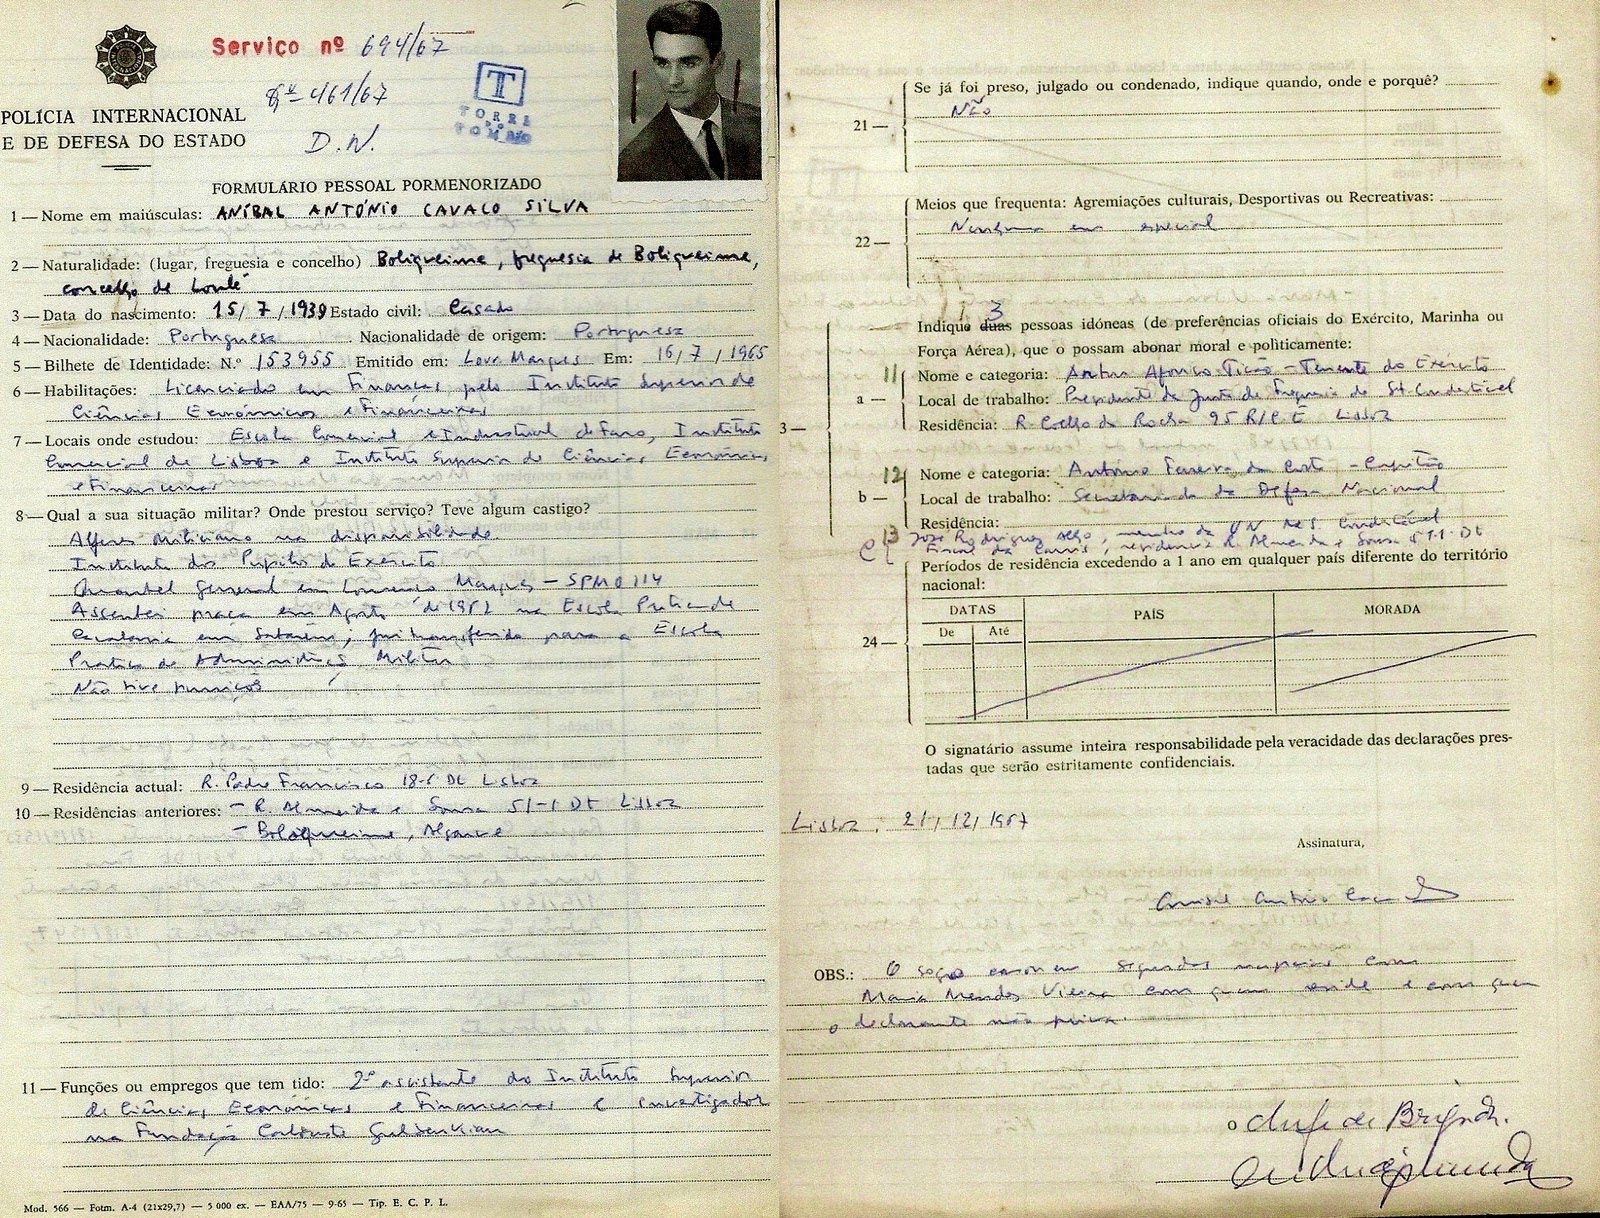 Serviço nº 694/67
461/67
D. N.
T
TORRE
DO
TOMBO
POLÍCIA INTERNACIONAL
E DE DEFESA DO ESTADO
FORMULÁRIO PESSOAL PORMENORIZADO
1 — Nome em maiúsculas: ANÍBAL ANTÓNIO CAVACO SILVA
2 — Naturalidade: (lugar, freguesia e concelho) Boliqueime, freguesia de Boliqueime,
concelho de Loulé
3 — Data do nascimento: 15/7/1939 Estado civil: Casado
4 — Nacionalidade: Portuguesa. Nacionalidade de origem: Portuguesa
5 — Bilhete de Identidade: N.º 153955 Emitido em: Lour Marques Em: 16/7/1965
6 — Habilitações: Licenciado em Finanças pelo Instituto Superior de
Ciências Económicas e Financeiras
7 — Locais onde estudou: Escola Comercial e Industrial de Faro, Instituto
Comercial de Lisboa e Instituto Superior de Ciências Económicas
e Financeiras
8 — Qual a sua situação militar? Onde prestou serviço? Teve algum castigo?
Alferes miliciano na disponibilidade
Instituto dos Pupilos do Exército
Quartel General em Lourenço Marques — SPM 0114
Assentei praça em Agosto de 1962 na Escola Prática de
Cavalaria em Santarém, fui transferido para a Escola
Prática de Administração Militar
Não tive punições
9 — Residência actual: R. Padre Francisco 18-6 Dt Lisboa
10 — Residências anteriores: — R. Almeida e Sousa 51-1 Dt Lisboa
— Boliqueime, Algarve
11 — Funções ou empregos que tem tido: 2º assistente do Instituto Superior
de Ciências Económicas e Financeiras e investigador
na Fundação Calouste Gulbenkian
Mod. 566 — Fotm. A-4 (21x29,7) — 5 000 ex. — EAA/75 — 9-65 — Tip. E. C. P. L.
21 — Se já foi preso, julgado ou condenado, indique quando, onde e porquê?
Não
22 — Meios que frequenta: Agremiações culturais, Desportivas ou Recreativas:
Nenhuma em especial
3
3 — Indique duas pessoas idóneas (de preferências oficiais do Exército, Marinha ou
Força Aérea), que o possam abonar moral e políticamente:
11 Nome e categoria: Artur Afonso Tição - Tenente do Exército
a — Local de trabalho: Presidente da Junta de Freguesia de Stº Condestável
Residência: R. Coelho da Rocha 95 R/C E Lisboa
12 Nome e categoria: António Ferreira da Costa - Capitão
b — Local de trabalho: Secretariado da Defesa Nacional
Residência:
13 José Rodrigues, membro da UN de S. Condestável
c Fiscal da Carris, residência R. Almeida e Sousa 51-1 Dt
24 — Períodos de residência excedendo a 1 ano em qualquer país diferente do território
nacional:
DATAS PAÍS MORADA
De Até
O signatário assume inteira responsabilidade pela veracidade das declarações pres-
tadas que serão estritamente confidenciais.
Lisboa, 21/12/1967
Assinatura,
Aníbal António
OBS.: O sogro casou em segundas núpcias com
Maria Mendes Vieira com quem reside e com quem
o declarante não priva.
o chefe de Brigada